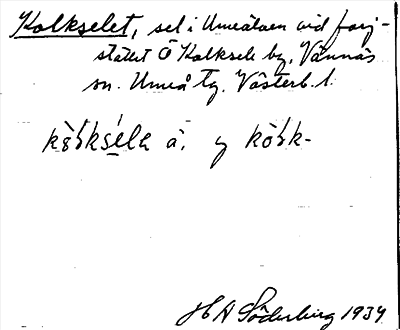 Kolkselet, sel i Umeälven vid färj-
stället Ö Kolksele by, Vännäs
sn. Umeå tg. Västerb. l.
kò̀lksé̱la ä. y kò̀lk-
H A Söderberg 1934